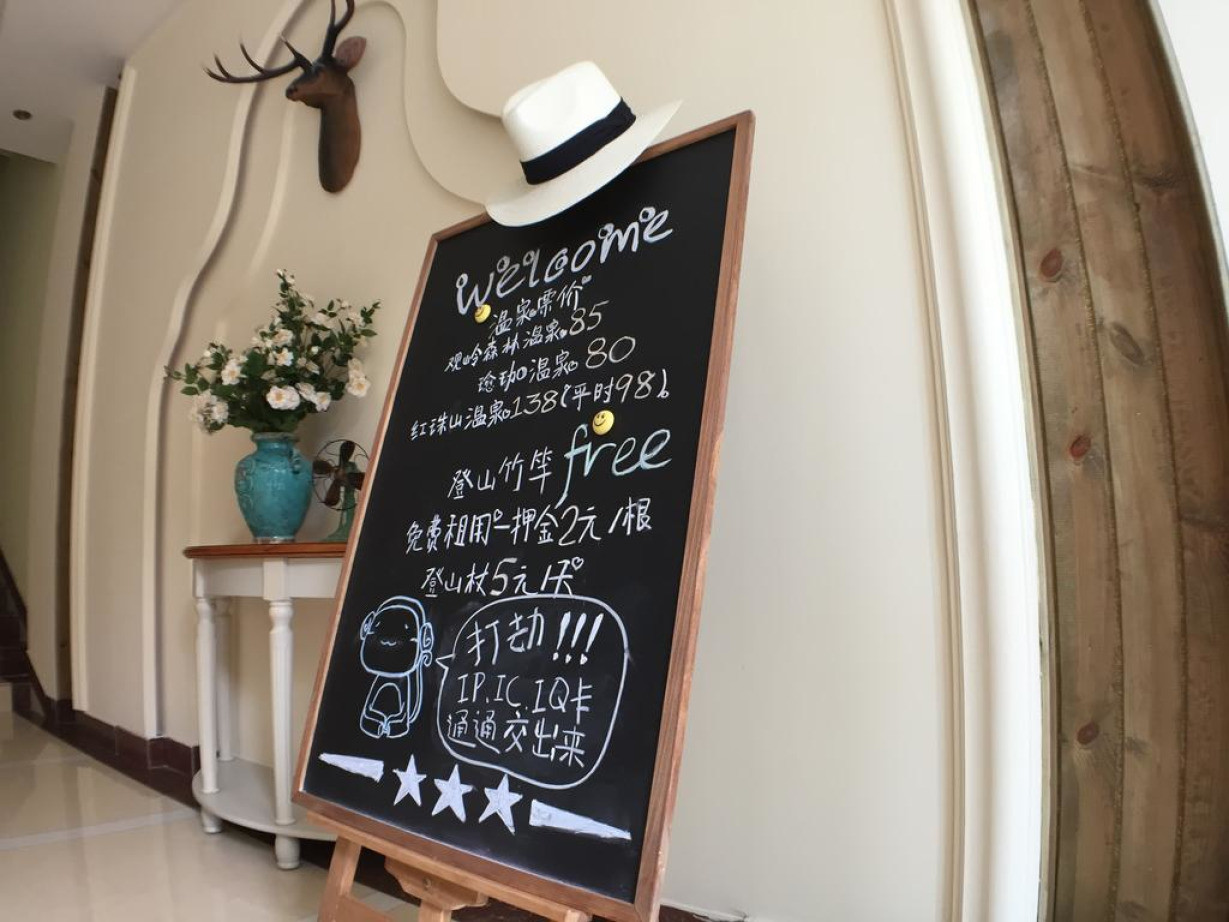 welcome
温泉票价
观岭森林温泉85
瑜珈温泉80
红珠山温泉138(平时98)
登山竹竿free
免费租用-押金2元/根
登山杖5元/天
打劫!!!
IP.IC.IQ卡
通通交出来